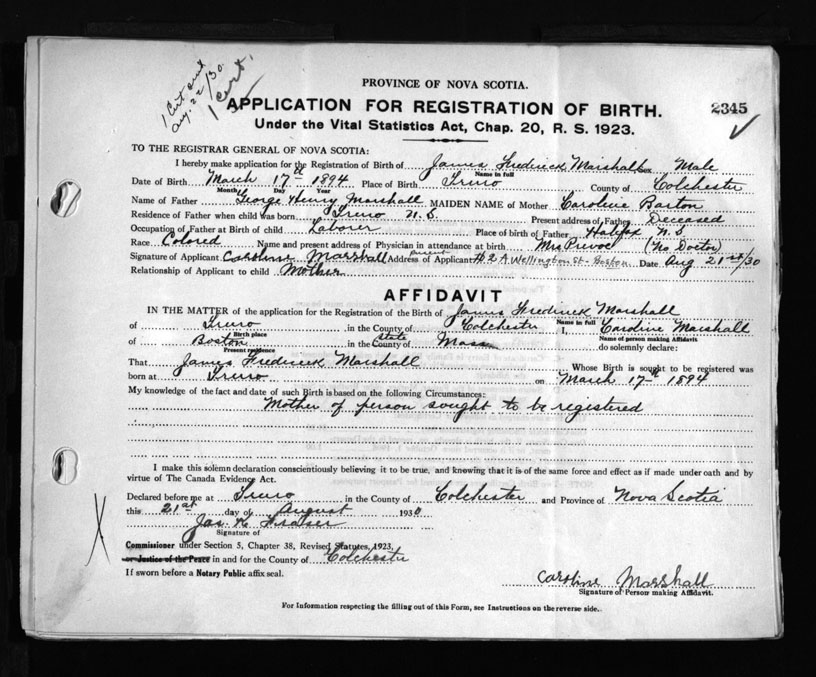 1 Cert sent
Aug. 22/30.
1 Cert.
PROVINCE OF NOVA SCOTIA.
APPLICATION FOR REGISTRATION OF BIRTH. 2345
Under the Vital Statistics Act, Chap. 20, R. S. 1923.
TO THE REGISTRAR GENERAL OF NOVA SCOTIA:
I hereby make application for the Registration of Birth of James Frederick Marshall Sex Male
Name in full
Date of Birth March 17th 1894 Place of Birth Truro County of Colchester
Month Day Year
Name of Father George Henry Marshall MAIDEN NAME of Mother Caroline Barton
Residence of Father when child was born Truro N.S. Present address of Father Deceased
Occupation of Father at Birth of child Laborer Place of birth of Father Halifax N.S.
Race Colored Name and present address of Physician in attendance at birth Mrs (No Doctor)
Signature of Applicant Caroline Marshall Present Address of Applicant #2A Wellington St. Boston Date Aug 21st/30
Relationship of Applicant to child Mother
AFFIDAVIT
IN THE MATTER of the application for the Registration of the Birth of James Frederick Marshall
Name in full
of Truro in the County of Colchester I, Caroline Marshall
Birth place Name of person making Affidavit
of Boston in the County of State Mass do solemnly declare:
Present residence
That James Frederick Marshall Whose Birth is sought to be registered was
born at Truro on March 17th 1894
My knowledge of the fact and date of such Birth is based on the following Circumstances:
Mother of person sought to be registered
I make this solemn declaration conscientiously believing it to be true, and knowing that it is of the same force and effect as if made under oath and by
virtue of The Canada Evidence Act.
Declared before me at Truro in the County of Colchester and Province of Nova Scotia
this 21st day of August 1930
Jas. Fraser
Signature of
Commissioner under Section 5, Chapter 38, Revised Statutes, 1923,
or Justice of the Peace in and for the County of Colchester
If sworn before a Notary Public affix seal.
Caroline Marshall
Signature of Person making Affidavit.
For Information respecting the filling out of this Form, see Instructions on the reverse side.